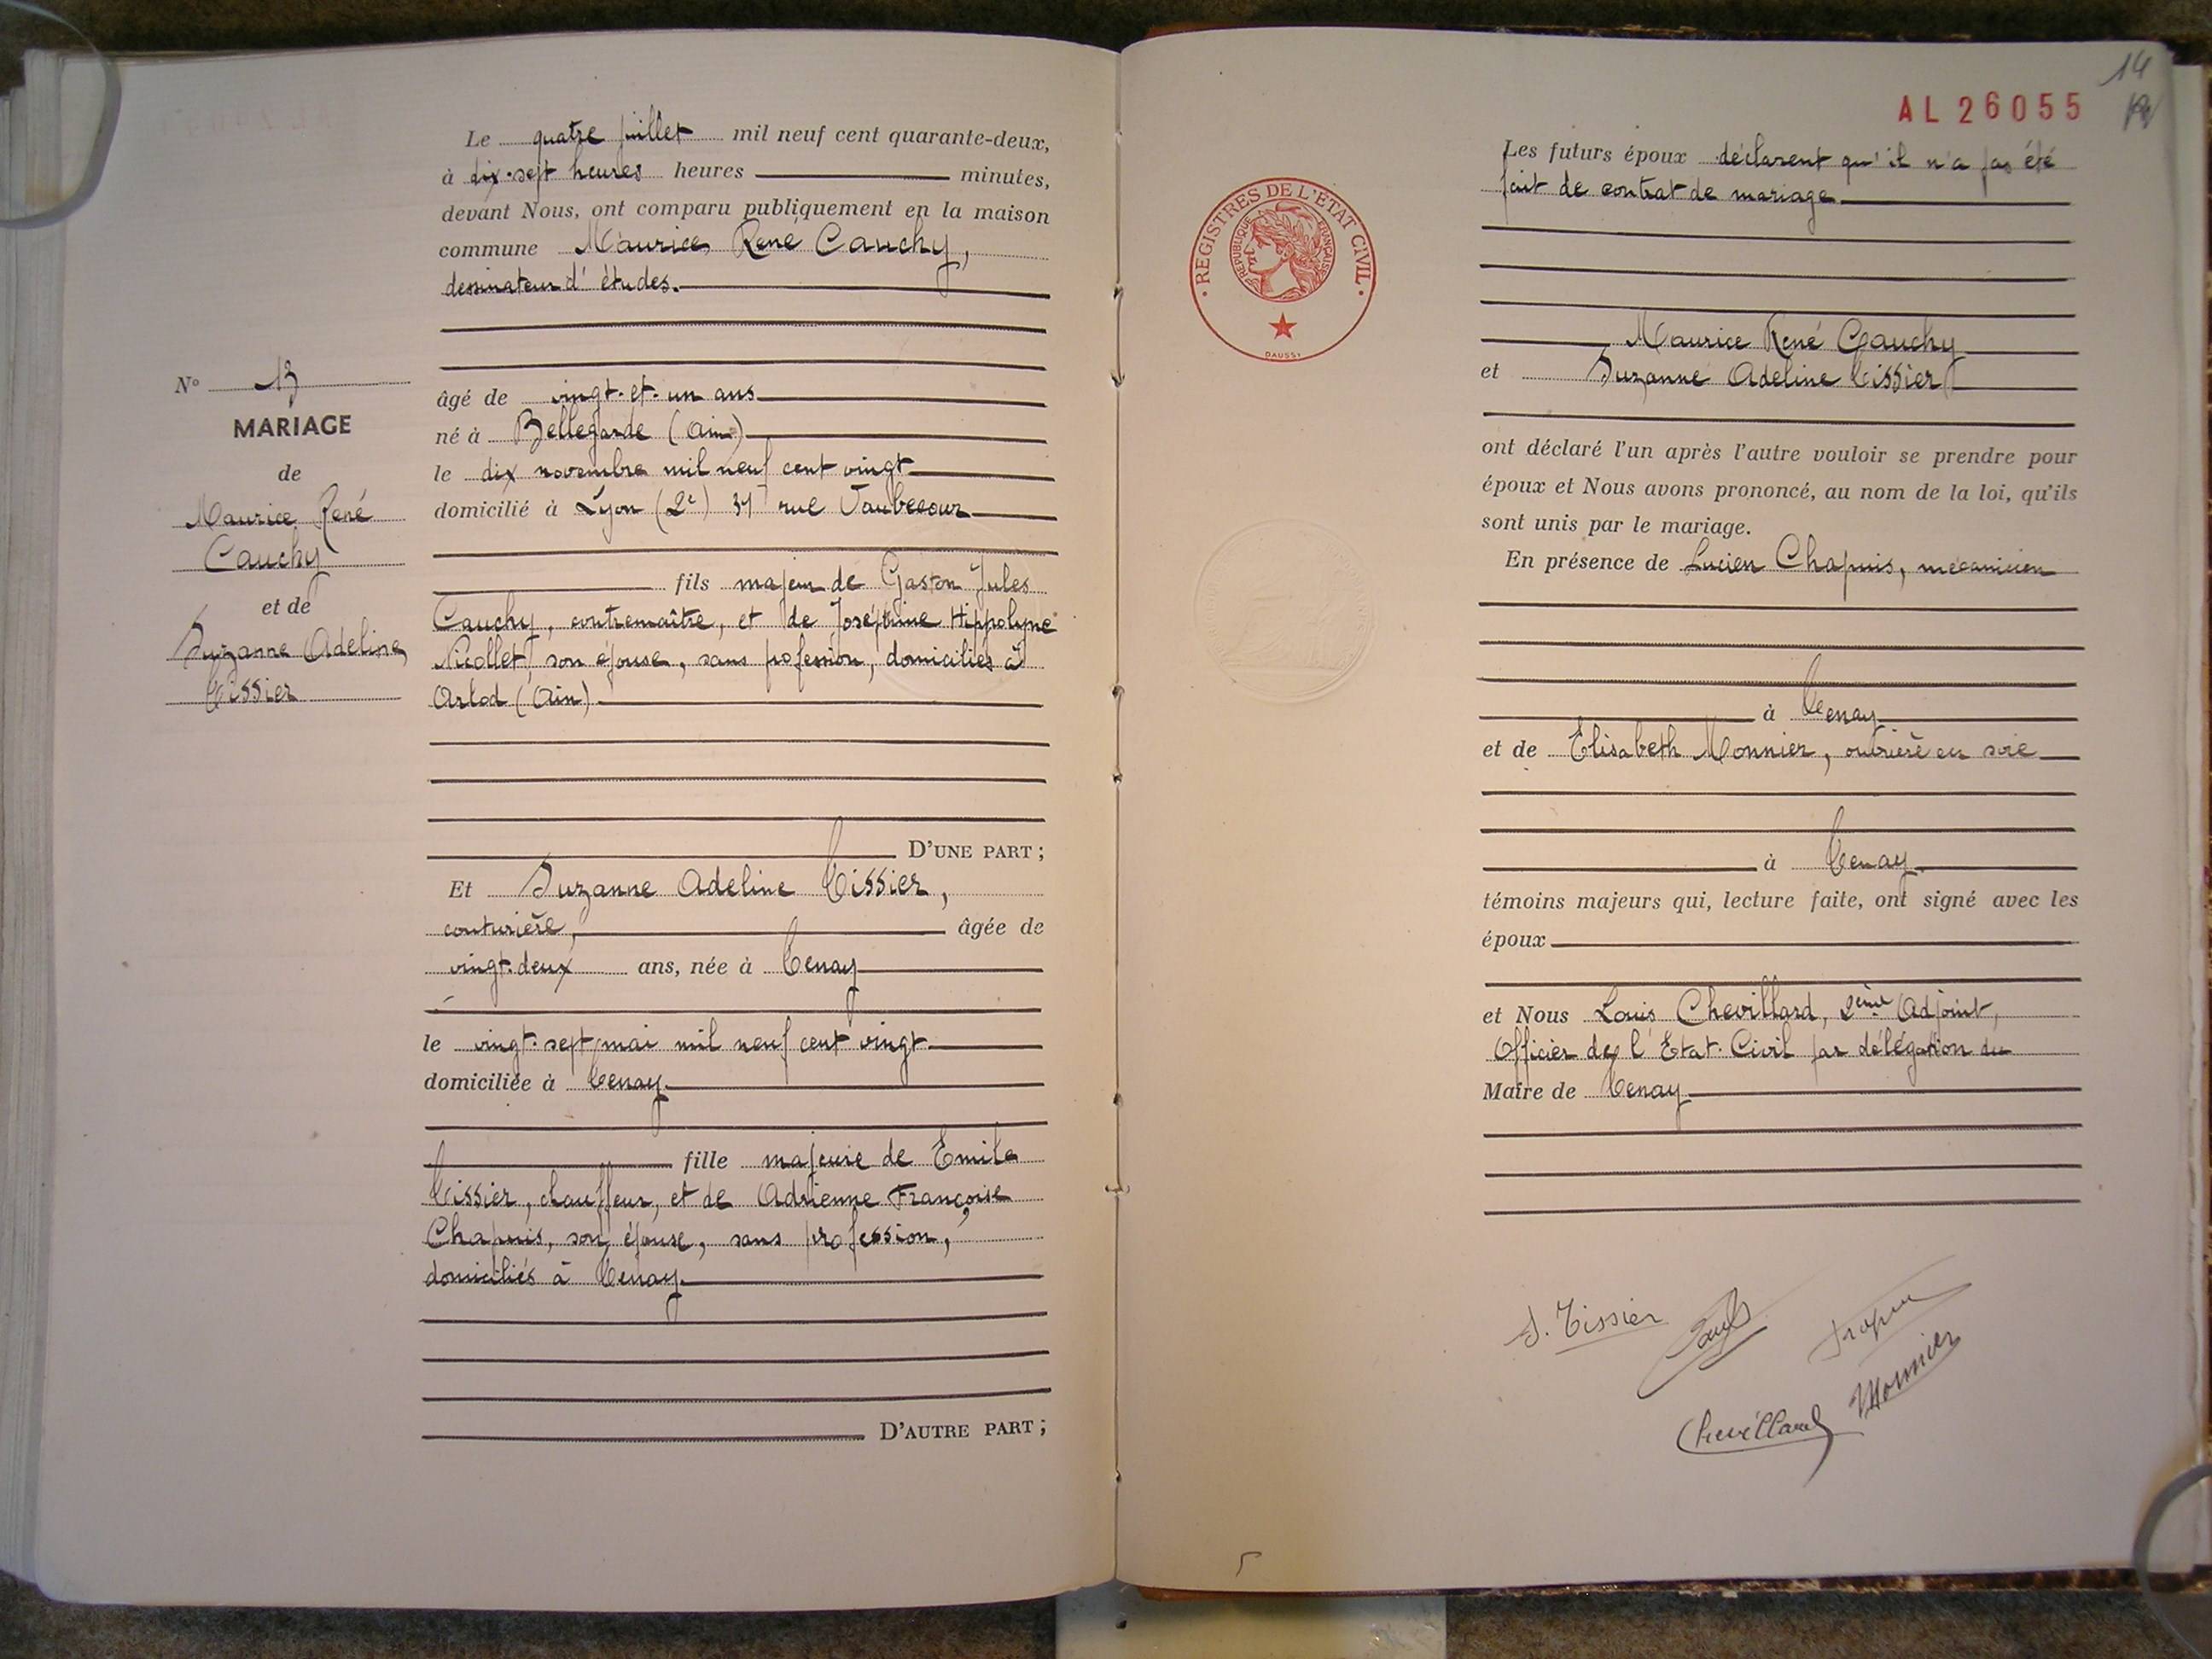 Le quatre juillet mil neuf cent quarante-deux,
à dix-sept heures heures minutes,
devant Nous, ont comparu publiquement en la maison
commune Maurice René Cauchy,
dessinateur d'études.
âgé de vingt-et-un ans
né à Bellegarde (Ain)
le dix novembre mil neuf cent vingt
domicilié à Lyon (2e) rue Vaubecour
fils majeur de Gaston Jules
Cauchy, contremaître, et de Joséphine Hippolyne
Nicollet, son épouse, sans profession, domiciliés à
Arlod (Ain)
D'UNE PART ;
Et Suzanne Adeline Tissier,
couturière, âgée de
vingt-deux ans, née à Tenay
le vingt-sept mai mil neuf cent vingt
domiciliée à Tenay
fille majeure de Emile
Tissier, chauffeur, et de Adrienne Françoise
Chapuis, son épouse, sans profession,
domiciliés à Tenay
D'AUTRE PART ;
N° 13
MARIAGE
de
Maurice René
Cauchy
et de
Suzanne Adeline
Tissier
14
AL 26055
REGISTRES DE L'ÉTAT CIVIL
RÉPUBLIQUE FRANÇAISE
DAUSSY
Les futurs époux déclarent qu'il n'a pas été
fait de contrat de mariage
Maurice René Cauchy
et Suzanne Adeline Tissier
ont déclaré l'un après l'autre vouloir se prendre pour
époux et Nous avons prononcé, au nom de la loi, qu'ils
sont unis par le mariage.
En présence de Lucien Chapuis, mécanicien
à Tenay
et de Elisabeth Monnier, ouvrière en soie
à Tenay
témoins majeurs qui, lecture faite, ont signé avec les
époux
et Nous Louis Chevillard, 2ème Adjoint,
Officier de l'Etat-Civil par délégation du
Maire de Tenay
S. Tissier
Monnier
Chevillard